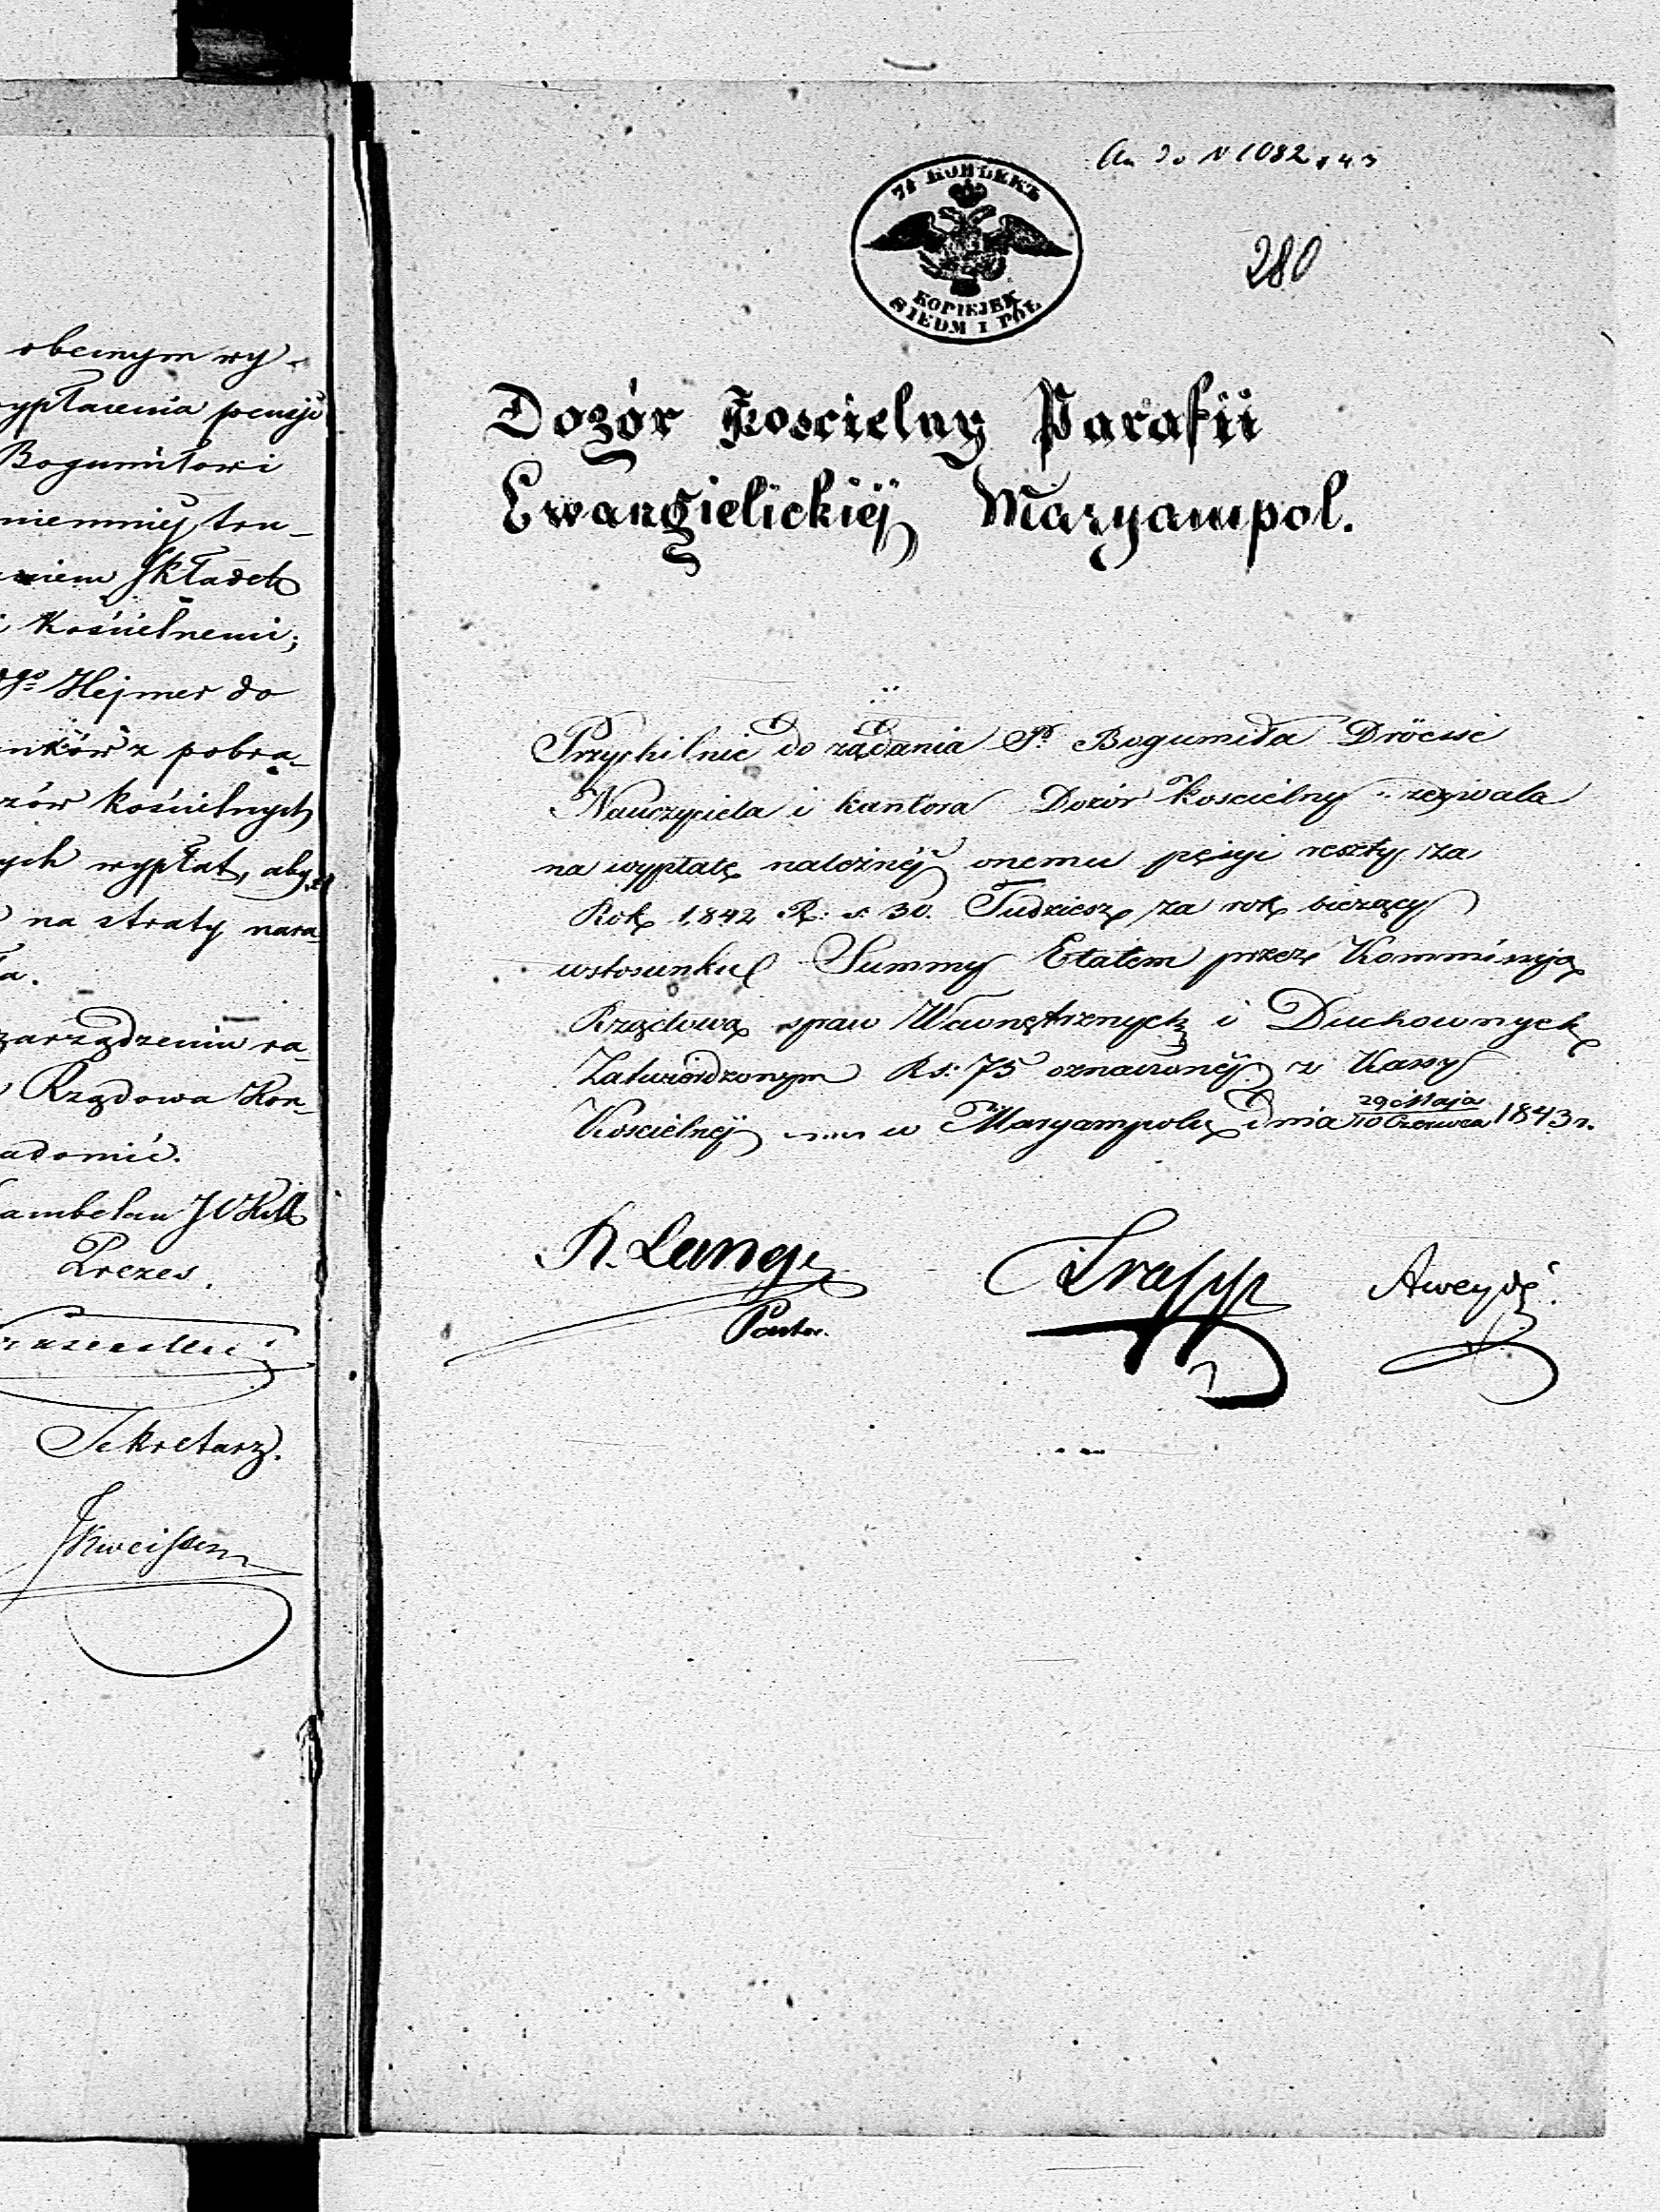 obecnym wy-
wypłacenia pensji
Bogumiłowi
niemniéj tru-
niem składek
i Kościelnemi;
Hejmer do
unków z pobra-
kościelnych
wypłat, aby
na straty nara-
zarządzeniu
Rządowa Kom-
adomić.
ambelan
Prezes.
Sekretarz.
do N 1082 843
7½ КОПѢЕКЪ
KOPIEJEK
SIEDM I PÓŁ
280
Dozór Koscielny Parafii
Ewangielickiéj Maryampol.
Przychilnie do rządania P. Bogumiła Dröesse
Nauczyciela i kantora Dozór Koscielny zezwala
na wypłatę należnéj onemu pęsyi reszty za
Rok 1842 R: s: 30. Tudziesz za rok bieżący
wstosunku Summy Etatem przez Kommissyją
Rządową spraw Wewnętrznych i Duchownych
Zatwierdzonym Rs: 75 oznaczonéj z Kassy
Koscielnéj w Maryampolu dnia 29 Maja / 10 Czerwca 1843 r.
R. Lange
Pastor.
Aweyde